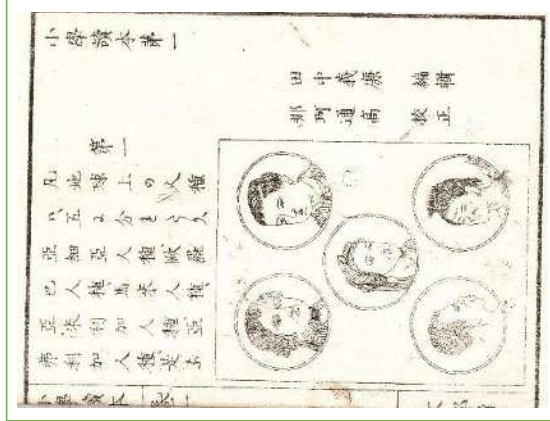 小學讀本第一
田中義廉 編輯
那珂通高 校正
第一
凡地球上の人種
ハ五に分れたり
亞細亞人種歐羅
巴人種馬來人種
亞米利加人種亞
弗利加人種是な